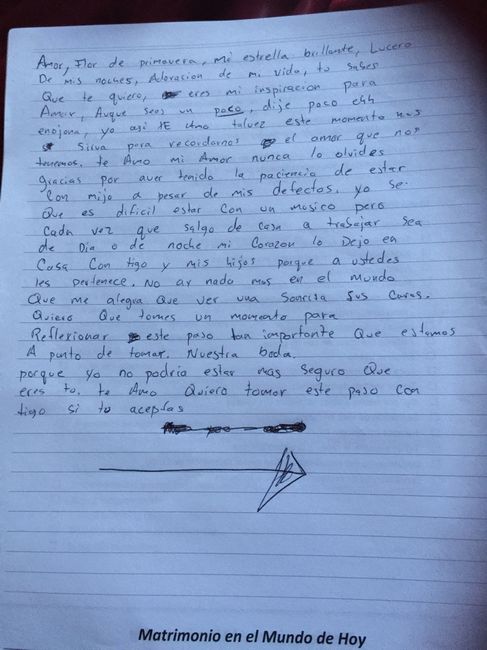 Amor, Flor de primavera, mi estrella brillante, Lucero
De mis noches, Adoracion de mi vida, tu sabes
Que te quiero, eres mi inspiracion para
Amar, Auque seas un poco, dije poco ehh
enojona, yo asi tE amo talvez este momento nos
Sirva para recordarnos el amor que nos
tenemos, te Amo mi Amor nunca lo olvides
gracias por aver tenido la paciencia de estar
Con mijo a pesar de mis defectos, yo se.
Que es dificil estar Con un mosico pero
Cada vez que salgo de casa a trabajar sea
de Dia o de noche mi Corazon lo Dejo en
Casa Con tigo y mis hijos porque a ustedes
les pertenece. No ay nada mas en el mundo
Que me alegra Que ver una Sonrisa Sus Caras.
Quiero Que tomes un momento para
Reflexionar este paso tan importante Que estamos
A punto de tomar. Nuestra boda.
porque yo no podria estar mas seguro Que
eres tu. te Amo Quiero tomar este paso con
tigo si tu aceptas
Matrimonio en el Mundo de Hoy